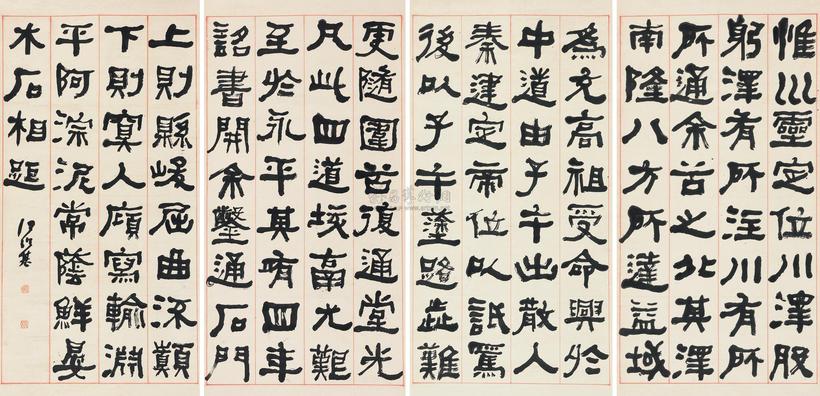 惟巛靈定位川澤股
躬澤有所注川有所
所通余谷之川其澤
南隆八方所達益域
為充高祖受命興於
中道由子午出散入
秦建定帝位以詆焉
後以子午塗路歮難
更隨圍谷復通堂光
凡此四道垓鬲尤難
至於永平其有四年
詔書開余鑿通石門
上則縣峻屈曲流顛
下則冥入廎寫輸淵
平阿淙泥常蔭鮮晏
木石相距
何紹基